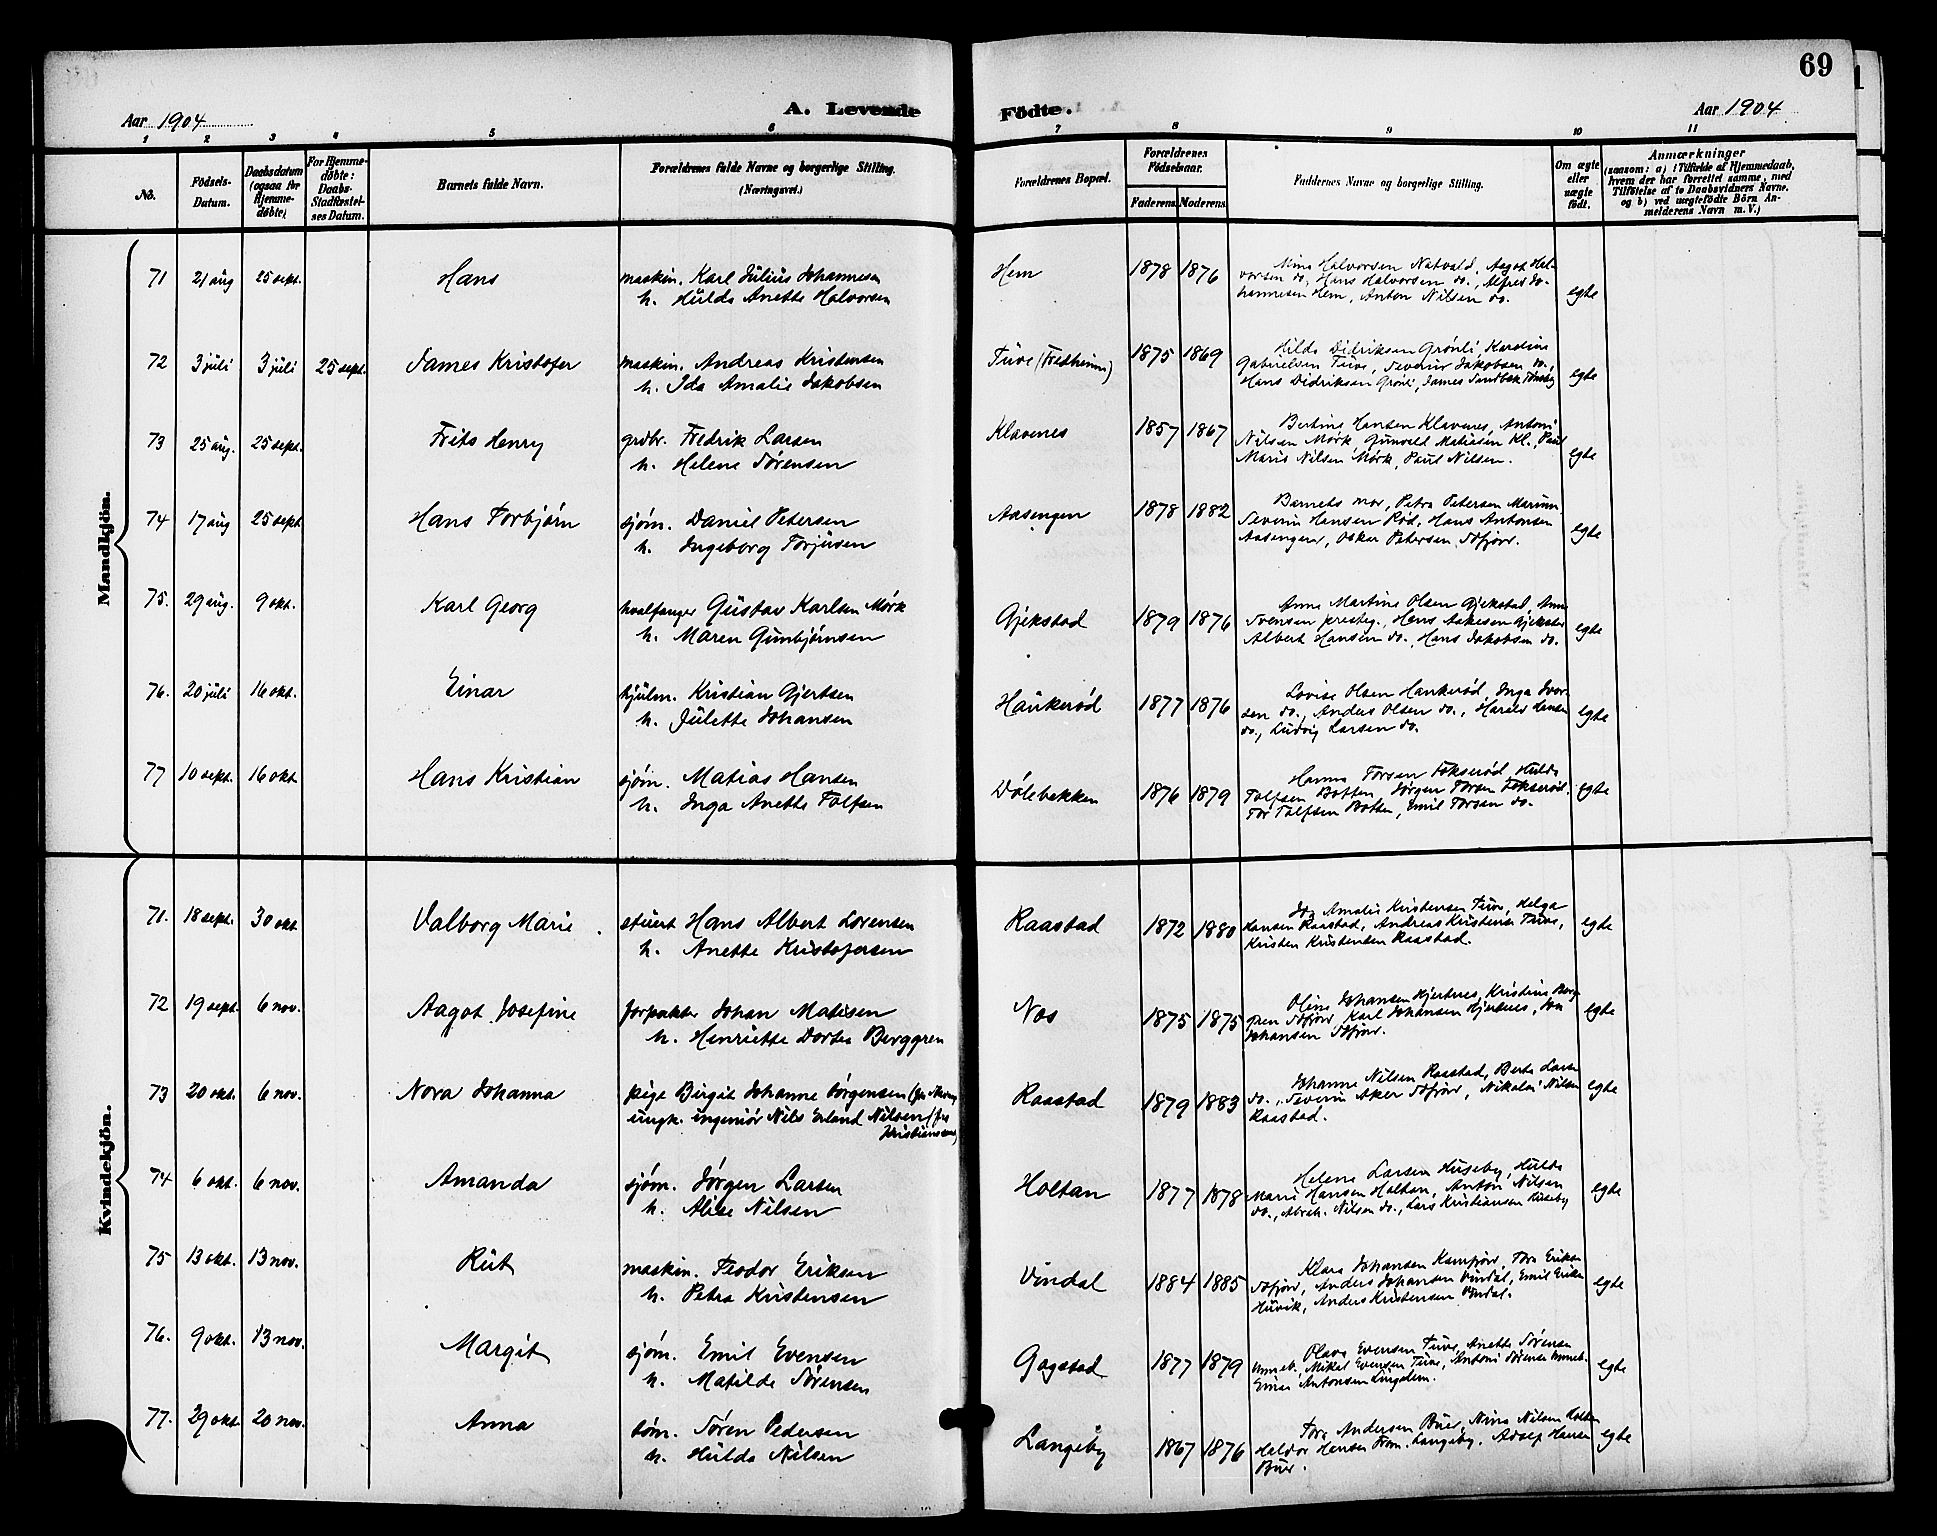 69
Aar 1904
A. Levende
Födte.
Aar 1904
1 2 3 4 5 6 7 8 9 10 11
No.
Födsels-Datum.
Daabsdatum (ogsaa for Hjemmedöbte)
For Hjemmedöbte: Daabs-Stadfæstelses Datum.
Barnets fulde Navn.
Forældrenes fulde Navne og borgerlige Stilling. (Næringsvei.)
Forældrenes Bopæl.
Forældrenes Födselsaar.
Faderens. Moderens.
Faddernes Navne og borgerlige Stilling.
Om ægte eller uægte födt.
Anmærkninger
(saasom: a) i Tilfælde af Hjemmedaab, hvem der har forrettet samme, med Tilföielse af to Daabsvidners Navne, og b) ved uægtefödte Börn Anmelderens Navn m. V.)
Mandkjön.
71 21 aug 25 sept. Hans maskin. Karl Julius Johannesen
h. Hulda Anette Halvorsen
Hem 1878 1876 Mina Halvorsen Natvald, Aagot Hal-
vorsen do, Hans Halvorsen do., Alfred Jo-
hannesen Hem, Anton Nilsen do. egte
72 3 juli 3 juli 25 sept. James Kristofer maskin. Andreas Kristensen
h. Ida Amalie Jakobsen
Tuve (Fredheim) 1875 1869 Hilda Didriksen Grønli, Karoline
Gabrielsen Tuve, Severin Jakobsen do.,
Hans Didriksen Grønli, James Sandbæk Tønsbg egte
73 25 aug. 25 sept. Frits Henry grdbr. Fredrik Larsen
h. Helene Sørensen
Klavenes 1857 1867 Bertine Hansen Klavenes, Antoni
Nilsen Mørk, Gunvald Matiasen Kl., Paul
Maris Nilsen Mørk, Paul Nilsen. egte
74 17 aug 25 sept Hans Torbjørn sjøm. Daniel Petersen
h. Ingeborg Torjusen
Aasengen 1878 1882 Barnets mor, Petra Petersen Marum
Severin Hansen Rød, Hans Antonsen
Aasengen, Oskar Petersen Sdfjord. egte
75. 29 aug. 9 okt. Karl Georg hvalfanger Gustav Karlsen Mørk
h. Maren Gunbjørnsen
Gjekstad 1879 1876 Anna Martine Olsen Gjekstad, Anna
Svensen presteg., Hans Gjekstad
Albert Hansen do., Hans Jakobsen do. egte
76. 20 juli 16 okt. Einar hjulm. Kristian Gjertsen
h. Julette Johansen
Haukerød 1877 1876 Lovise Olsen Haukerød, Inga Ivar-
sen do., Anders Olsen do., Harald Hansen
do., Ludvig Larsen do. egte
77 10 sept. 16 okt Hans Kristian sjøm. Matias Hansen
h. Inga Anette Tolfsen
Dölebakken 1876 1879 Hanna Torsen Fokserød, Hulda
Tolfsen Botten, Jørgen Torsen Fokserød.
Tor Tolfsen Botten, Emil Torsen do. egte
Kvindekjön.
71. 18 sept. 30 okt Valborg Marie. stuert Hans Albert Sørensen
h. Anette Kristofersen
Raastad 1872 1880 Ida Amalie Kristensen Tuve, Helga
Hansen Raastad, Andreas Kristensen Tuve,
Kristen Kristensen Raastad. egte
72 19 sept. 6 nov. Aagot Josefine forpakter Johan Matisen
h. Henriette Dortea Berggren
Nes 1875 1875 Oline Johansen Hjertnes, Kristine Berg-
gren Sdfjord, Karl Johansen Hjertnes,
Johansen Sdfjord. egte
73 20 okt. 6 nov. Nora Johanna pige Birgit Johanne Jörgensen
ungk. ingeniör Nils Erland Nilsen (fra
Kristianssand)
Raastad 1879 1883 Johanne Nilsen Raastad, Berta Larsen
do., Severin Aker Sdfjord, Nikolai Nilsen
Raastad. egte
74 6 okt. 6 nov. Amanda sjøm. Jørgen Larsen
h. Alise Nilsen
Holtan 1877 1878 Helene Larsen Huseby, Hulda
Marie Hansen Holtan, Anton Nilsen
do., Abrah. Nilsen do., Lars Kristiansen Huseby egte
75 13 okt. 13 nov. Rut maskin. Teodor Eriksen
h. Petra Kristensen
Vindal 1884 1885 Klara Johansen Kamfjord, Tora Eriksen
Sdfjord, Anders Johansen Vindal, Emil Eriksen
Huvik, Anders Kristensen Vindal. egte
76. 9 okt. 13 nov. Margit sjøm. Emil Evensen
h. Matilde Sørensen
Gogstad 1877 1879 Olava Evensen Tuve, Anette Sørensen
Unneb., Mikal Evensen Tuve, Antoni Sørensen Unneb.
Einar Antonsen Lingelem. egte
77. 29 okt. 20 nov. Anna tøm. Søren Pedersen
h. Hulda Nilsen
Langeby 1867 1876 Tora Andersen Buer, Nina Nilsen Holtan
Haldor Hansen Fram. Langeby, Adolf Hansen
Buer. egte